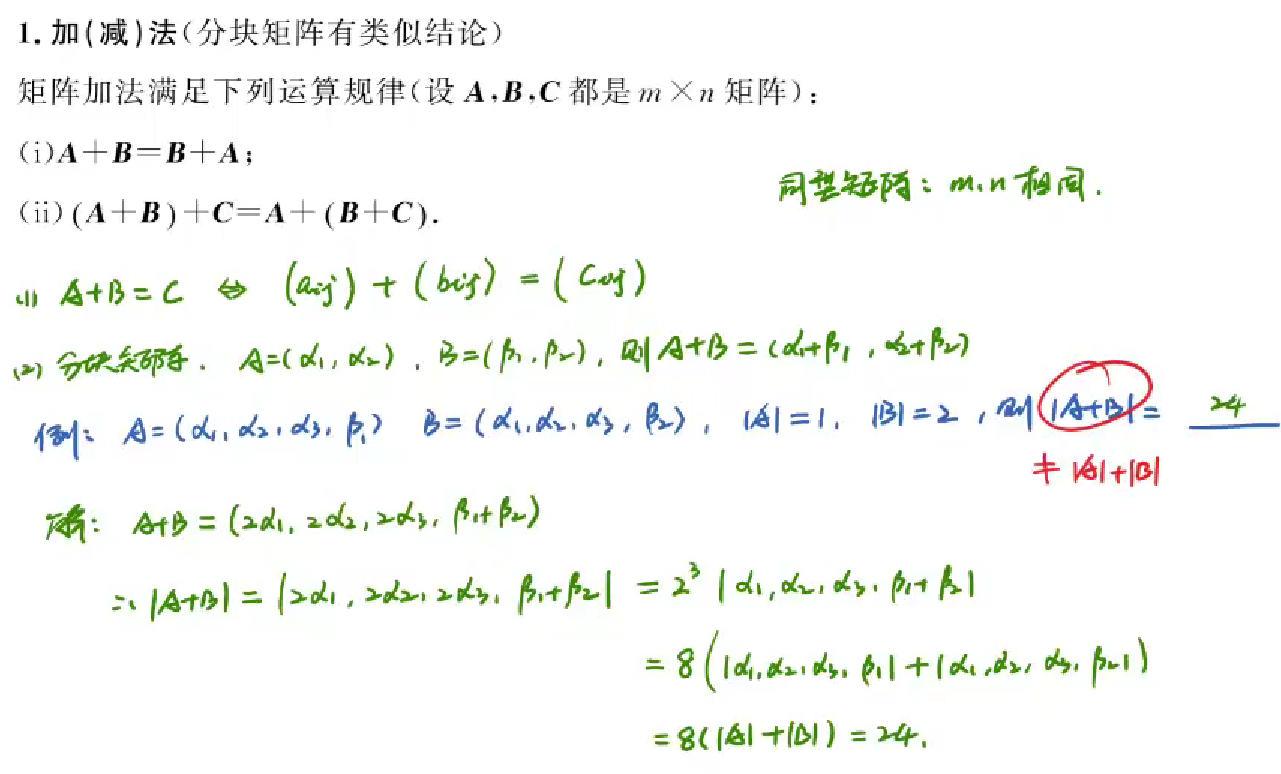 1. 加(减)法(分块矩阵有类似结论)
矩阵加法满足下列运算规律(设 A,B,C 都是 m×n 矩阵):
(i)A+B=B+A;
同型矩阵: m,n 相同.
(ii)(A+B)+C=A+(B+C).
(1) A+B=C ⇔ (aij)+(bij)=(cij)
(2) 分块矩阵. A=(α1,α2), B=(β1,β2), 则 A+B=(α1+β1,α2+β2)
例: A=(α1,α2,α3,β1) B=(α1,α2,α3,β2), |A|=1, |B|=2, 则 |A+B|= 24
≠ |A|+|B|
解: A+B=(2α1,2α2,2α3,β1+β2)
∴ |A+B|=|2α1,2α2,2α3,β1+β2| =2³|α1,α2,α3,β1+β2|
=8(|α1,α2,α3,β1|+|α1,α2,α3,β2|)
=8(|A|+|B|)=24.